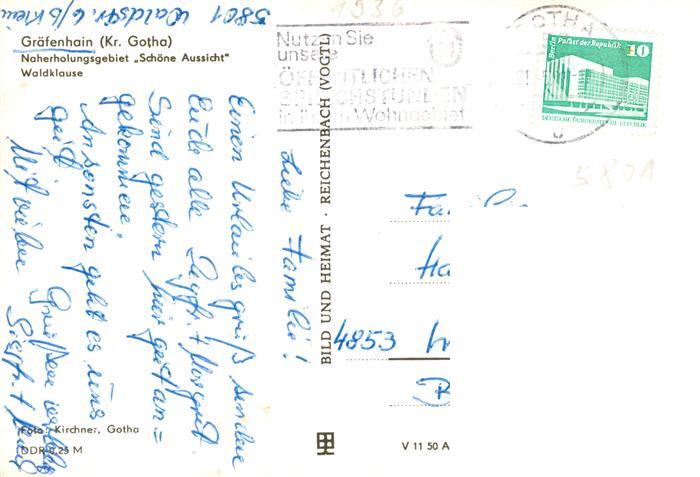 5801 Waldstr. 6
1936
Gräfenhain (Kr. Gotha)
Naherholungsgebiet „Schöne Aussicht"
Waldklause
Nutzen Sie
unsere
ÖFFENTLICHEN
SPRECHSTUNDEN
in Ihrem Wohngebiet
GOTHA
Berlin Palast der Republik
10
DEUTSCHE DEMOKRATISCHE REPUBLIK
5801
Liebe Familie!
Einen Urlaubsgruß senden
Euch alle
Sind gestern hier gut an=
gekommen.
Ansonsten geht es uns
gut.
Mit vielen Grüßen
BILD UND HEIMAT · REICHENBACH (VOGTL)
Fa
Ha
4853
Foto: Kirchner, Gotha
DDR 0,25 M
V 11 50 A